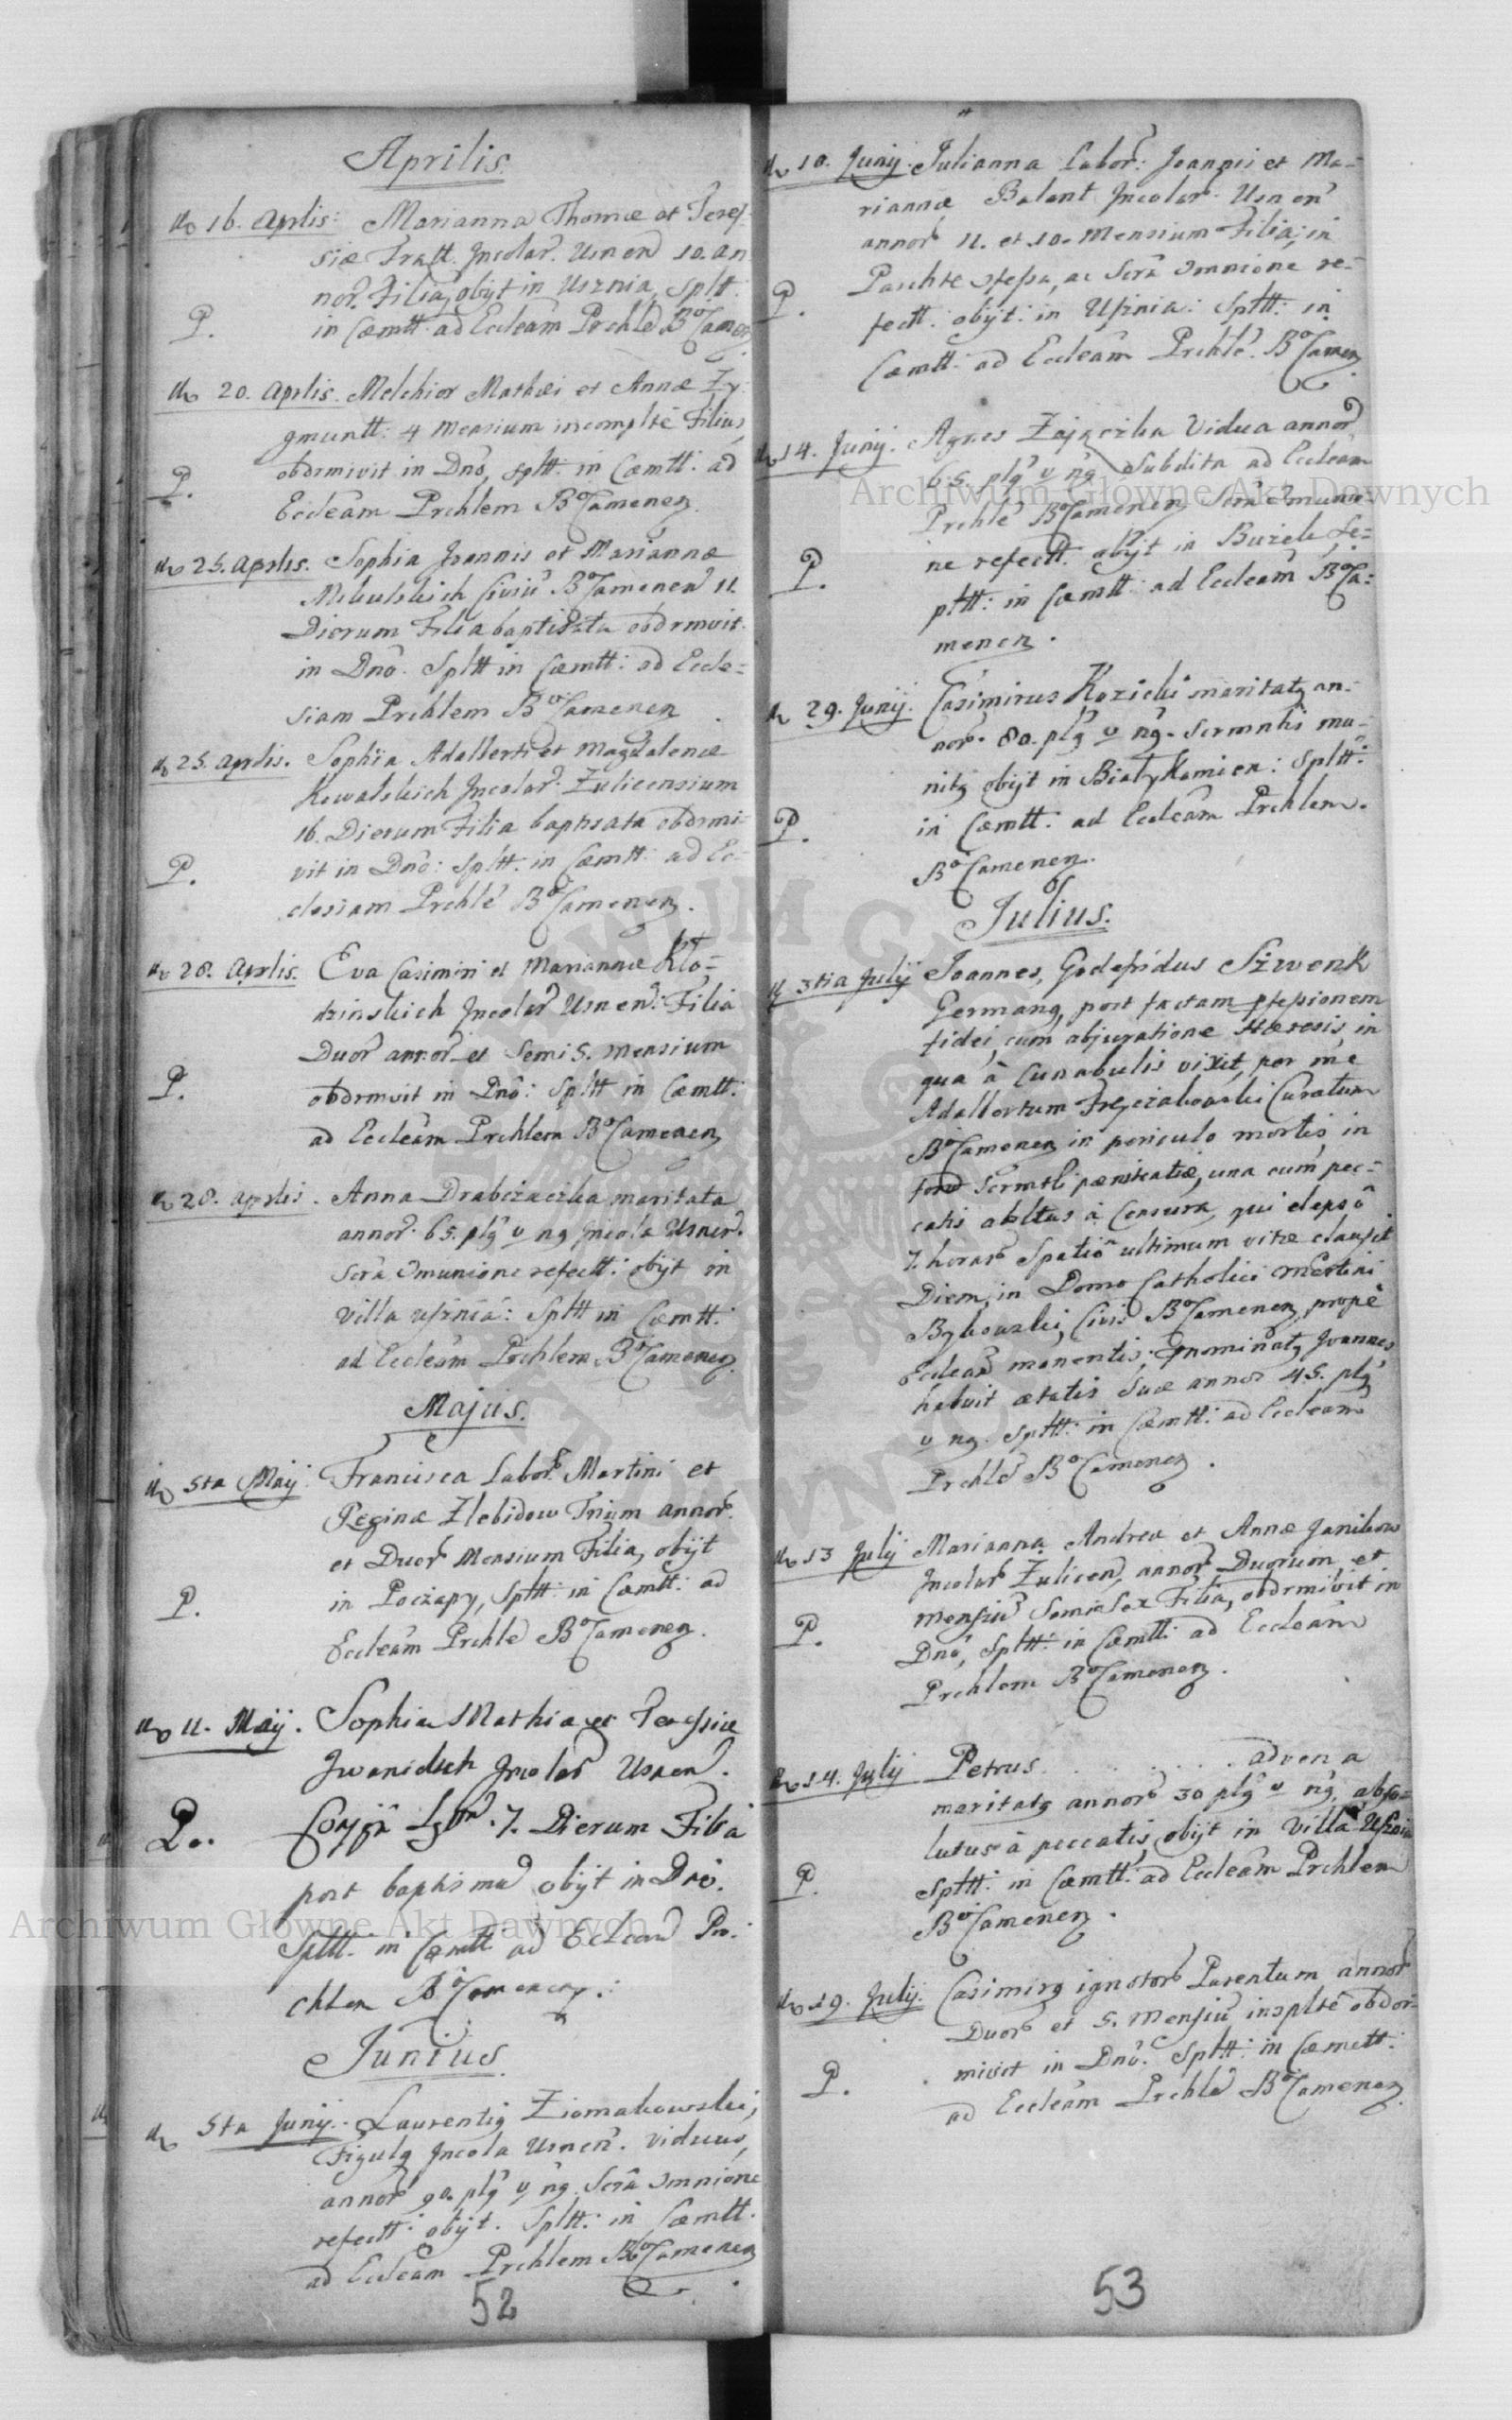 Aprilis.
16. Aprlis: Marianna Thomæ et Teres=
siæ Tratt. Jncolar. Usnen 10. an
nor. Filia, obijt in Usznia, Splt.
P. in Cæmtt: ad Eccleam Prchle B°Camen
20. Aprlis. Melchior Mathæi et Annæ Zy:
gmuntt: 4 Mensium incomplte Filius,
P. obdrmivit in Dno, Spltt: in Cæmtt: ad
Eccleam Prchlem B°Camenen.
25. Aprlis. Sophia Joannis et Mariannæ
Mikulskich Civiu B°Camenen 11.
Dierum Filia baptisata obdrmivit
in Dno. Spltt in Cæmtt: ad Eccle=
siam Prchlem B°Camenen.
25. Aprlis. Sophia Adalberti et Magdalenæ
Kowalskich Jncolar. Zulicensium
16. Dierum Filia baptisata obdrmi=
P. vit in Dno: Spltt: in Cæmtt: ad Ec=
clesiam Prchle B°Camenen.
28. Aprlis. Eva Casimiri et Mariannæ Klo=
dzinskich Jncolar Usnen: Filia
Duor annor et Semi 5. mensium
P. obdrmvit in Dno: Spltt in Cæmtt:
ad Eccleam Prchlem B°Camenen
28. Aprlis. Anna Drabczaczka maritata
annor. 65. plg v ng Jncola Usnen.
Scra Omunione refectt: obijt in
Villa Usznia: Spltt in Cæmtt:
ad Eccleam Prchlem B°Camenen.
Majus.
5ta Maij. Francisca Labor. Martini et
Reginæ Zlebidow Trium annor.
et Duor Mensium Filia, obijt
P. in Poczapy, Spltt: in Cæmtt: ad
Eccleam Prchle B°Camenen.
11. Maij. Sophia Mathia et Teressiæ
Jwanickich Jncolar Usnen.
P. 7. Dierum Filia
post baptisma obijt in Dno.
Spltt. in Cæmtt ad Eccleam Pr:
chlem B°Camenen.
Junius.
5ta Junij. Laurentig Ziomakowski,
Figulg Jncola Usnen. viduus,
annor 90. plg v ng. Scra Omnione
refectt: obijt. Spltt: in Cæmtt.
ad Eccleam Prchlem B°Camenen
52
10. Junij. Julianna Labor: Joannis et Ma=
riannæ Balant Jncolar. Usnen
annor 11. et 10. Mensium Filia, in
P. Paschte Ofessa, ac Scra Omnione re=
fectt: obijt: in Usznia: Spltt: in
Cæmtt: ad Eccleam Prchle. B°Camen
14. Junij. Agnes Zajączka Vidua annor
65. plg v ng Subdita ad Eccleam
Prchle B°Camenen Scra Omunio=
P. ne refectt. obijt in Buzek Se=
pltt: in Cæmtt: ad Eccleam B°Ca=
menen.
29. Junij. Casimirus Kozicki maritatg an=
nor. 80. plg v ng. Scrmntis mu=
nitg obijt in BiałyKamien: Spltt:
P. in Cæmtt: ad Eccleam Prchlem.
B°Camenen.
Julius.
3tia Julij Joannes, Godefridus Szwenk
Germang, post factam pfessionem
fidei, cum abjuratione Hæresis, in
qua à Cunabulis vixit, per me
Adalbertum Curatum
B°Camenen in periculo mortis, in
foro Scrmtli pænitentiæ, una cum pec=
catis absltus à Censura, qui elapso
7. horar Spatio ultimum vitæ clausit
Diem, in Domo Catholici Martini
Bykowski, Civis B°Camenen, prope
Eccleam manentis, Joannes,
habuit ætatis suæ annor 45. plg
v ng. Spltt: in Cæmtt: ad Eccleam
Prchle B°Camenen.
13 Julij Marianna Andreæ et Annæ Janikow
Jncolar Zulicen, annor Duorum, et
mensiu Semi Sex Filia, obdrmivit in
P. Dno, Spltt: in Cæmtt: ad Eccleam
Prchlem B°Camenen.
14. Julij Petrus . . . . . . advena
maritatg annor 30 plg v ng, abso=
lutus à peccatis, obijt in Villa Usznia
P. Spltt: in Cæmtt: ad Eccleam Prchlem
B°Camenen.
19. Julij. Casimirg ignotor Parentum annor
Duor et 5. Mensiu inoplte obdor=
mivit in Dno. Spltt: in Cæmett:
P. ad Eccleam Prchle B°Camenen.
53
Archiwum Główne Akt Dawnych
Archiwum Główne Akt Dawnych